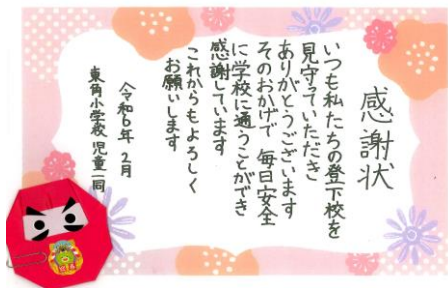 感謝状
いつも私たちの登下校を
見守っていただき
ありがとうございます
そのおかげで 毎日安全
に学校に通うことができ
感謝しています
これからもよろしく
お願いします
令和6年2月
東角小学校 児童一同